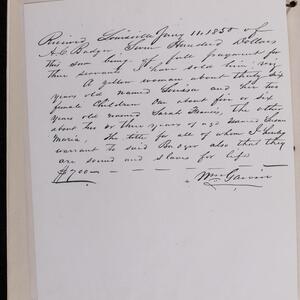 Received Louisville Jany 11. 1850 of
A. C. Badger Seven Hundred Dollars
this sum being of full payment for
three servants I have sold him; viz
A yellow woman about thirty six
years old named Louisa and her two
female Children One about five or six
years old named Sarah Frances, the other
about two or three years of age named Susan
Maria. The title for all of whom I hereby
warrant to said Badger also that they
are sound and slaves for life
$700.00
Wm Garvin